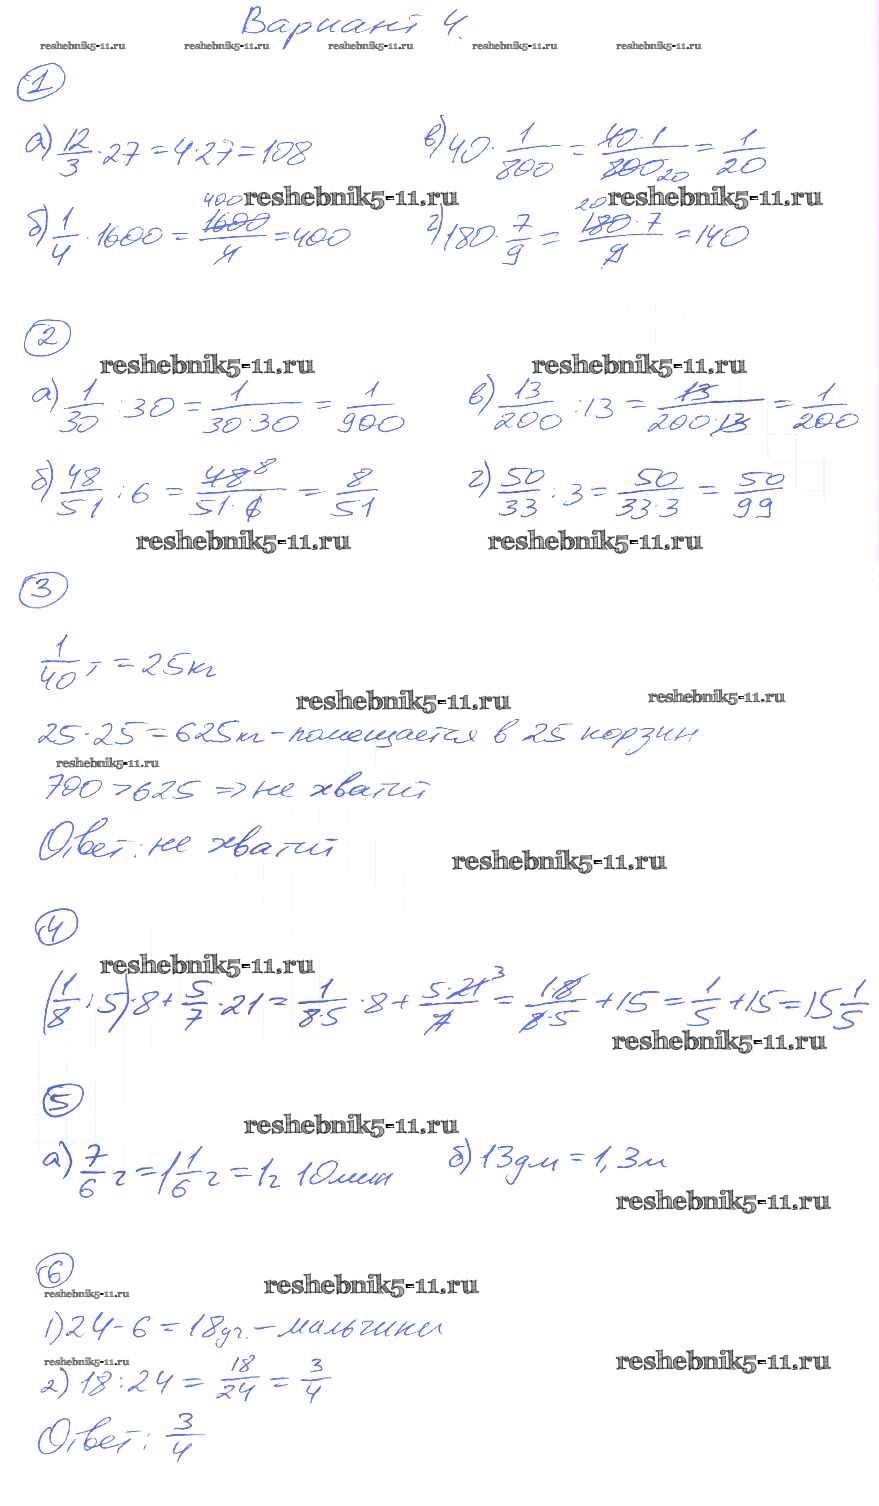 Вариант 4.
reshebnik5-11.ru reshebnik5-11.ru reshebnik5-11.ru reshebnik5-11.ru reshebnik5-11.ru
1
а) 12/3 · 27 = 4 · 27 = 108
в) 40 · 1/800 = 40 · 1/800 20 = 1/20
reshebnik5-11.ru reshebnik5-11.ru
б) 1/4 · 1600 = 400 1600/4 = 400
г) 180 · 7/9 = 20 180 · 7/9 = 140
2
reshebnik5-11.ru reshebnik5-11.ru
а) 1/30 : 30 = 1/30·30 = 1/900
в) 13/200 : 13 = 13/200·13 = 1/200
б) 48/51 : 6 = 48 8/51·6 = 8/51
г) 50/33 : 3 = 50/33·3 = 50/99
reshebnik5-11.ru reshebnik5-11.ru
3
1/40 т = 25кг
reshebnik5-11.ru reshebnik5-11.ru
25 · 25 = 625кг - помещается в 25 корзин
reshebnik5-11.ru
700 > 625 => не хватит
Ответ: не хватит
reshebnik5-11.ru
4
reshebnik5-11.ru
(1/8 : 5) · 8 + 5/7 · 21 = 1/8·5 · 8 + 5·21 3/7 = 1·8/8·5 + 15 = 1/5 + 15 = 15 1/5
reshebnik5-11.ru
5
reshebnik5-11.ru
а) 7/6 ч = 1 1/6 ч = 1ч 10мин
б) 13дм = 1,3м
reshebnik5-11.ru
6
reshebnik5-11.ru
reshebnik5-11.ru
1) 24 - 6 = 18уч. - мальчики
reshebnik5-11.ru
reshebnik5-11.ru
2) 18 : 24 = 18/24 = 3/4
Ответ: 3/4